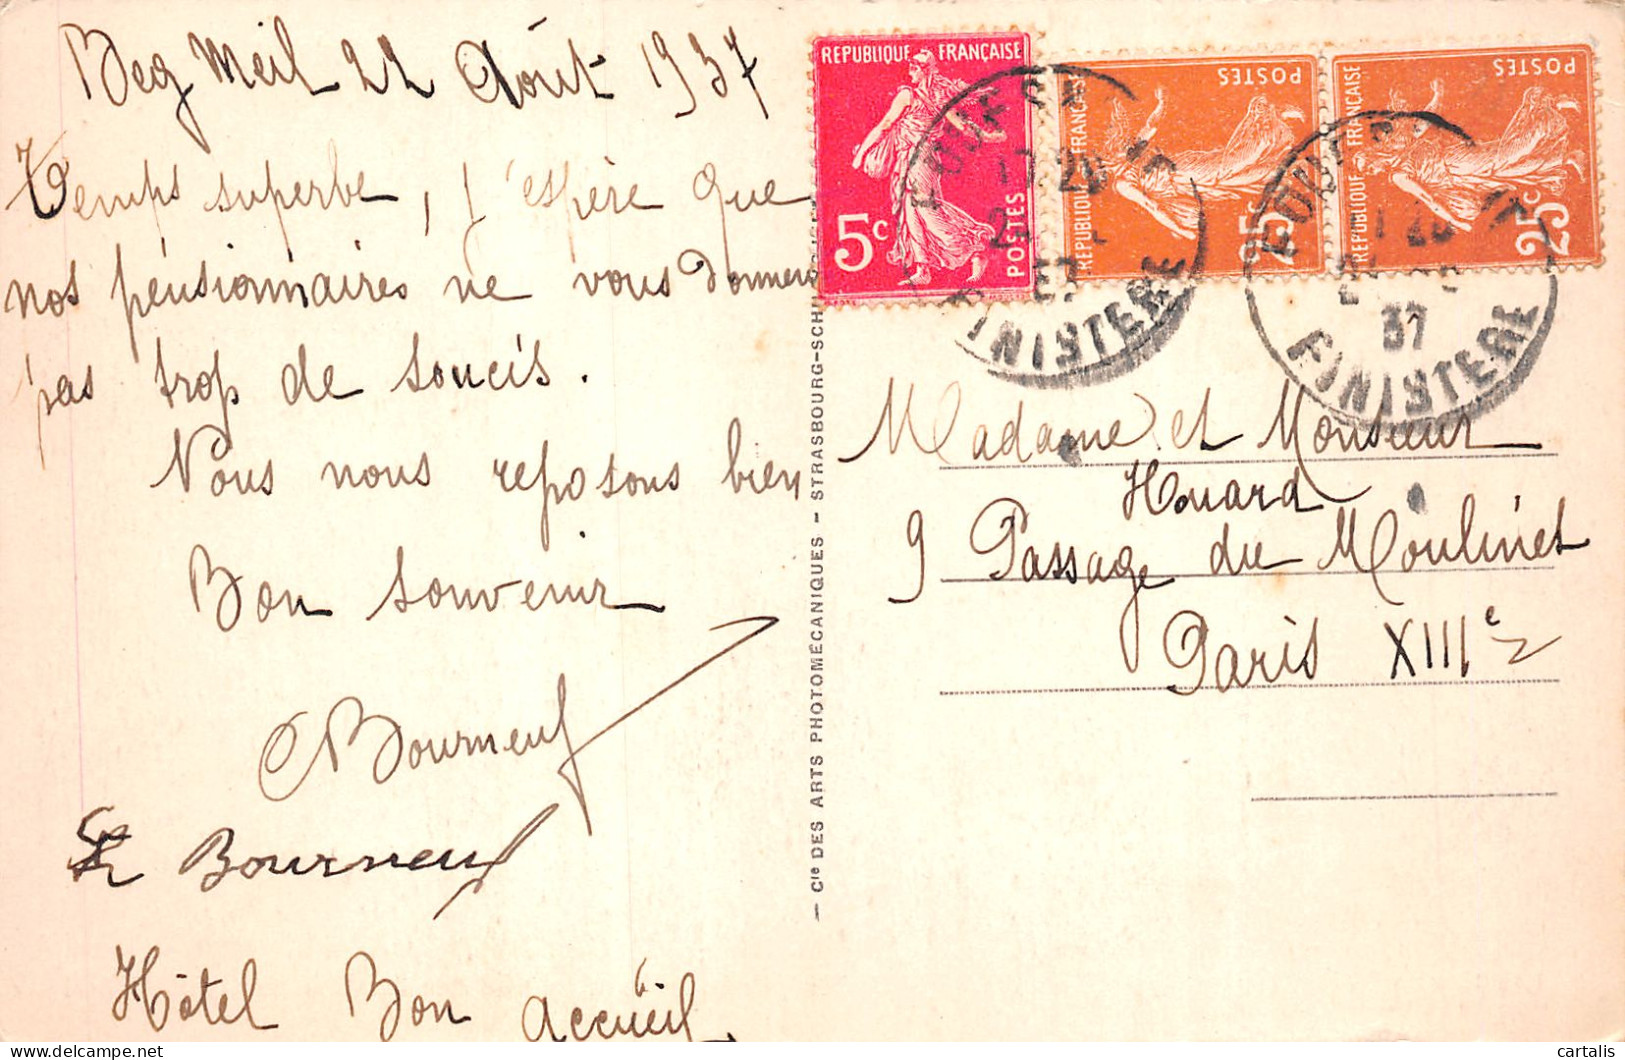 Beg Meil 22 Août 1937
Temps superbe, j'espère que
nos pensionnaires ne vous donnent
pas trop de soucis.
Nous nous reposons bien
Bon souvenir
Bourneuf
Bourneuf
Hôtel Bon Accueil
— Cie DES ARTS PHOTOMÉCANIQUES - STRASBOURG-SCH
REPUBLIQUE FRANÇAISE
5c
POSTES
REPUBLIQUE FRANÇAISE
POSTES
25c
REPUBLIQUE FRANÇAISE
POSTES
25c
FINISTERE
37
FINISTERE
Madame et Monsieur
Houard
9 Passage du Moulinet
Paris XIIIe
cartalis